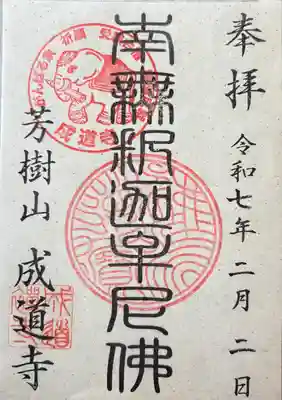 奉拝
令和七年二月二日
南無釈迦牟尼佛
芳樹山 成道寺
成道寺